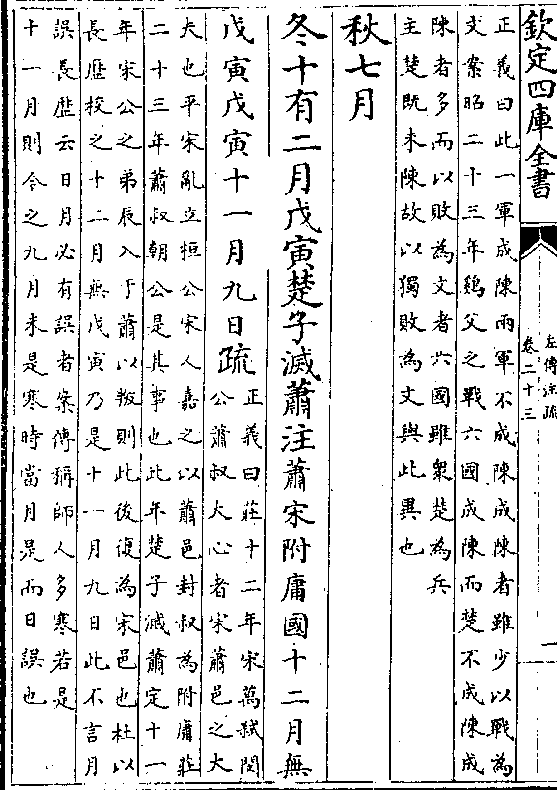 欽定四庫全書
左傳注疏
卷二十三
一
正義曰此一軍成陳兩軍不成陳成陳者雖少以戰為
文案昭二十三年鷄父之戰六國成陳而楚不成陳成
陳者多而以敗為文者六國雖衆楚為兵
主楚既未陳故以獨敗為文與此異也
秋七月
冬十有二月戊寅楚子滅蕭注蕭宋附庸國十二月無
戊寅戊寅十一月九日疏
正義曰莊十二年宋萬弒閔
公蕭叔大心者宋蕭邑之大
夫也平宋亂立桓公宋人嘉之以蕭邑封叔為附庸莊
二十三年蕭叔朝公是其事也此年楚子滅蕭定十一
年宋公之弟辰入于蕭以叛則此後復為宋邑也杜以
長厯校之十二月無戊寅乃是十一月九日此不言月
誤長厯云日月必有誤者案傳稱師人多寒若是
十一月則今之九月未是寒時當月是而日誤也